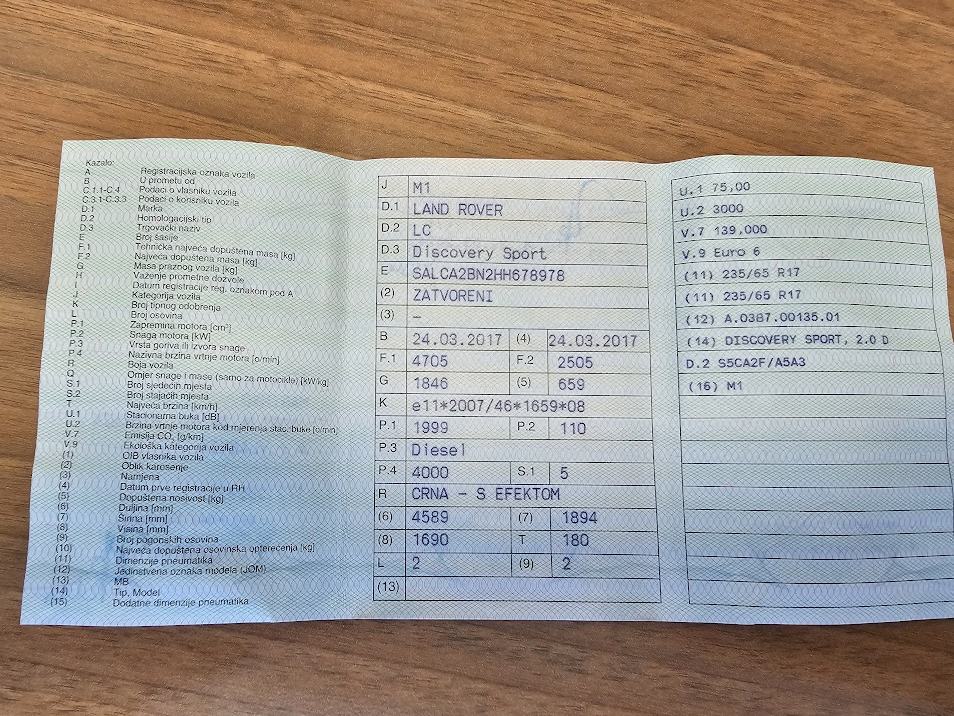 Kazalo:
A Registracijska oznaka vozila
B U prometu od
C.1.1-C.4 Podaci o vlasniku vozila
C.3.1-C.3.3 Podaci o korisniku vozila
D.1 Marka
D.2 Homologacijski tip
D.3 Trgovački naziv
E Broj šasije
F.1 Tehnička najveća dopuštena masa [kg]
F.2 Najveća dopuštena masa [kg]
G Masa praznog vozila [kg]
H Važenje prometne dozvole
I Datum registracije reg. oznakom pod A
J Kategorija vozila
K Broj tipnog odobrenja
L Broj osovina
P.1 Zapremina motora [cm³]
P.2 Snaga motora [kW]
P.3 Vrsta goriva ili izvora snage
P.4 Nazivna brzina vrtnje motora [o/min]
R Boja vozila
Q Omjer snage i mase (samo za motocikle) [kW/kg]
S.1 Broj sjedećih mjesta
S.2 Broj stajaćih mjesta
T Najveća brzina [km/h]
U.1 Stacionarna buka [dB]
U.2 Brzina vrtnje motora kod mjerenja stac. buke [o/min]
V.7 Emisija CO₂ [g/km]
V.9 Ekološka kategorija vozila
(1) OIB vlasnika vozila
(2) Oblik karoserije
(3) Namjena
(4) Datum prve registracije u RH
(5) Dopuštena nosivost [kg]
(6) Duljina [mm]
(7) Širina [mm]
(8) Visina [mm]
(9) Broj pogonskih osovina
(10) Najveća dopuštena osovinska opterećenja [kg]
(11) Dimenzije pneumatika
(12) Jedinstvena oznaka modela (JOM)
(13) MB
(14) Tip, Model
(15) Dodatne dimenzije pneumatika
J M1
D.1 LAND ROVER
D.2 LC
D.3 Discovery Sport
E SALCA2BN2HH678978
(2) ZATVORENI
(3) –
B 24.03.2017 (4) 24.03.2017
F.1 4705 F.2 2505
G 1846 (5) 659
K e11*2007/46*1659*08
P.1 1999 P.2 110
P.3 Diesel
P.4 4000 S.1 5
R CRNA – S EFEKTOM
(6) 4589 (7) 1894
(8) 1690 T 180
L 2 (9) 2
(13)
U.1 75,00
U.2 3000
V.7 139,000
V.9 Euro 6
(11) 235/65 R17
(11) 235/65 R17
(12) A.0387.00135.01
(14) DISCOVERY SPORT, 2.0 D
D.2 S5CA2F/A5A3
(16) M1